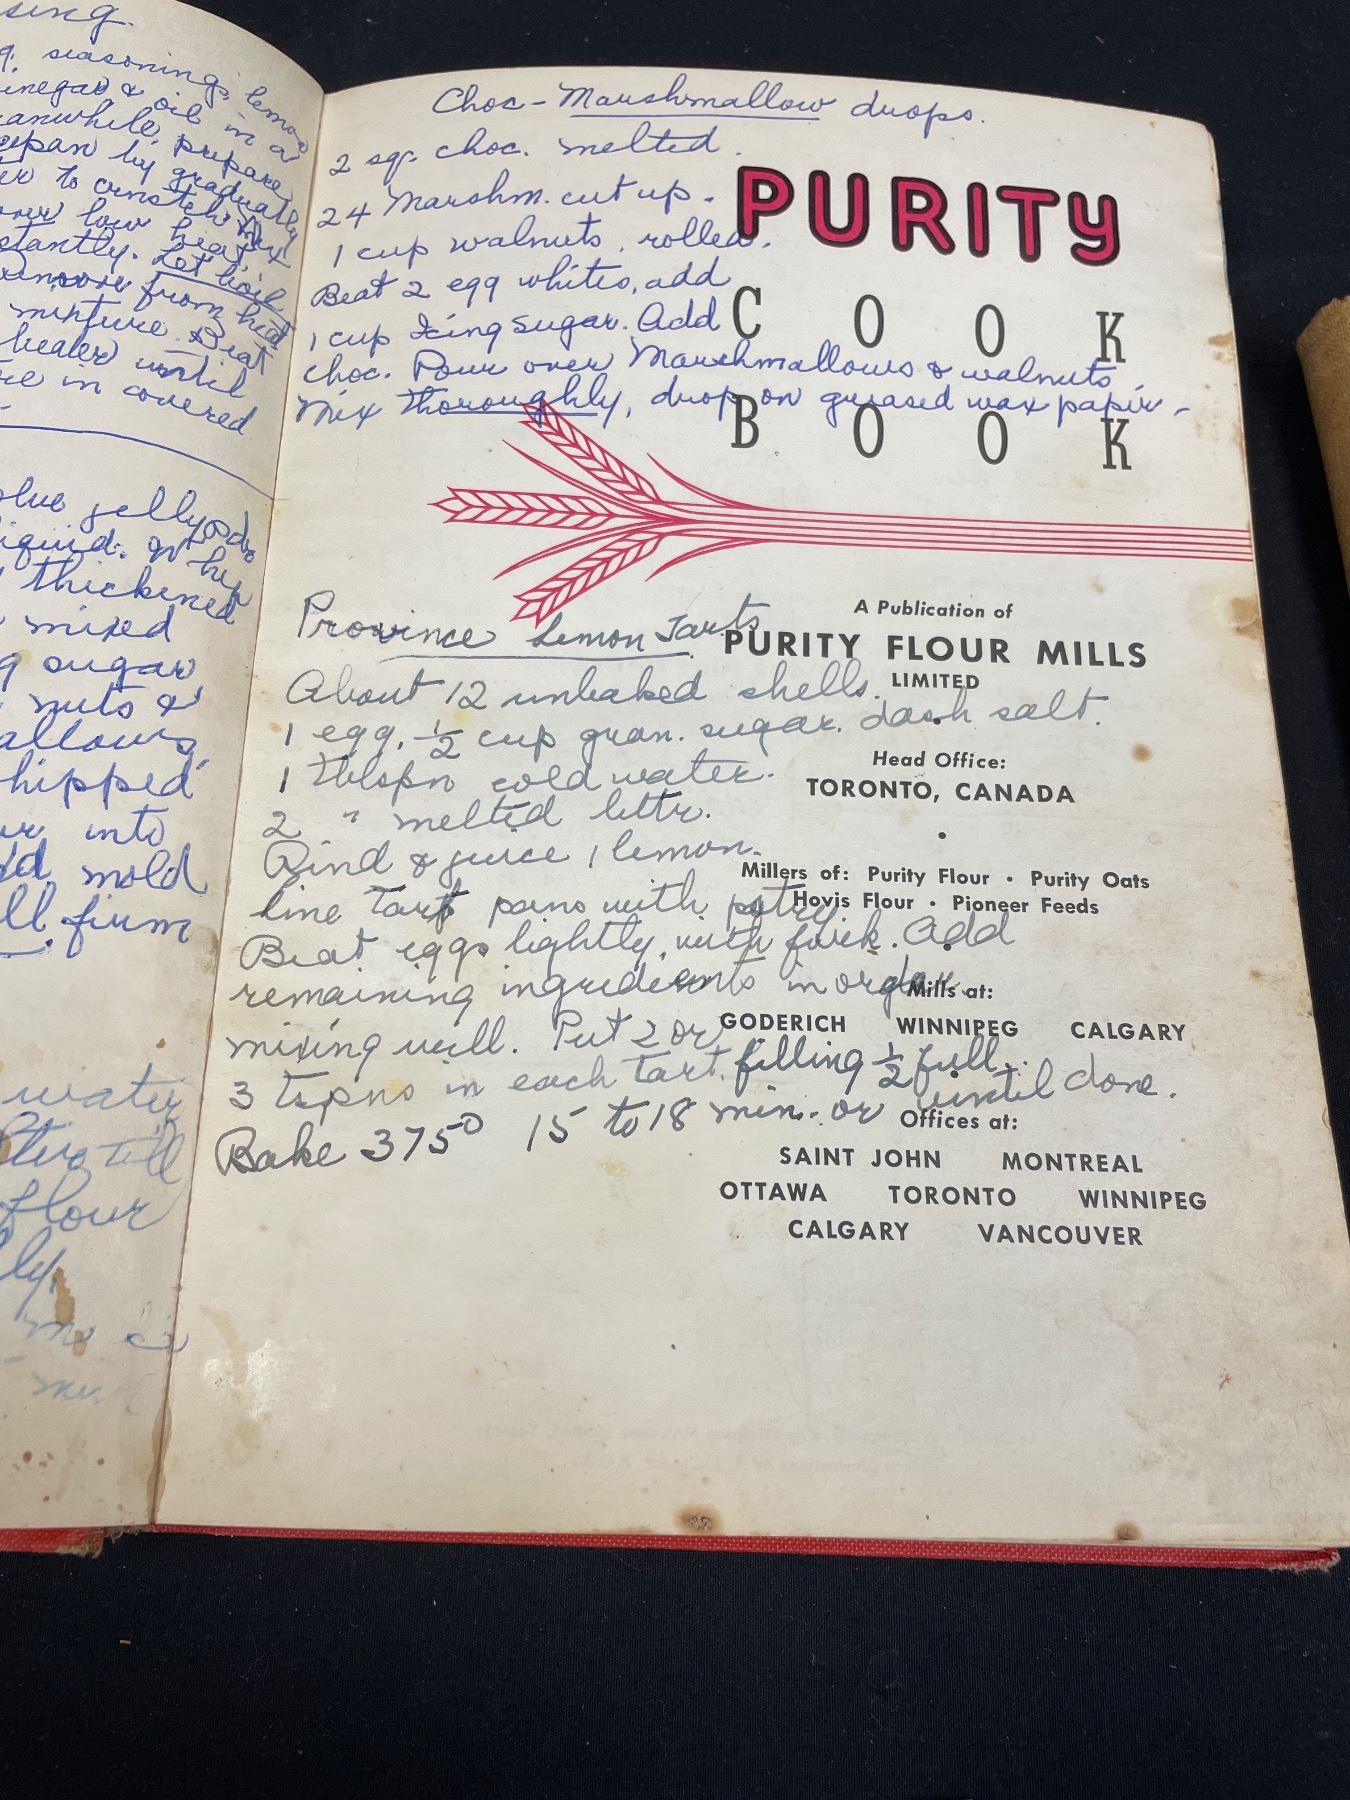 sing.
seasonings, lemon
vinegar & oil in a
meanwhile, prepare
by graduately
to cornstch. Mix
over low heat
stantly. Let boil
Remove from heat
mixture. Beat
beater until
in covered
jelly pdr
liquid.
thickened
mixed
sugar
nuts &
allows,
hipped
into
mold
firm
water
till
flour
ly.
Choc - Marshmallow drops.
2 sqr. choc. melted.
24 Marshm. cut up.
1 cup walnuts, rolled.
Beat 2 egg whites, add
1 cup Icing sugar. Add
choc. Pour over Marshmallows & walnuts,
Mix thoroughly, drop on greased wax paper.
PURITY
COOK
BOOK
Province Lemon Tarts
About 12 unbaked shells.
1 egg, ½ cup gran. sugar. dash salt.
1 tblspn cold water.
2 " melted bttr.
Rind & juice 1 lemon.
line Tart pans with pstry.
Beat eggs lightly, with fork. Add
remaining ingredients in order
mixing well. Put 2 or
3 tspns in each tart, filling ½ full.
Bake 375° 15 to 18 min. or until done.
A Publication of
PURITY FLOUR MILLS
LIMITED
Head Office:
TORONTO, CANADA
•
Millers of: Purity Flour • Purity Oats
Hovis Flour • Pioneer Feeds
Mills at:
GODERICH WINNIPEG CALGARY
Offices at:
SAINT JOHN MONTREAL
OTTAWA TORONTO WINNIPEG
CALGARY VANCOUVER